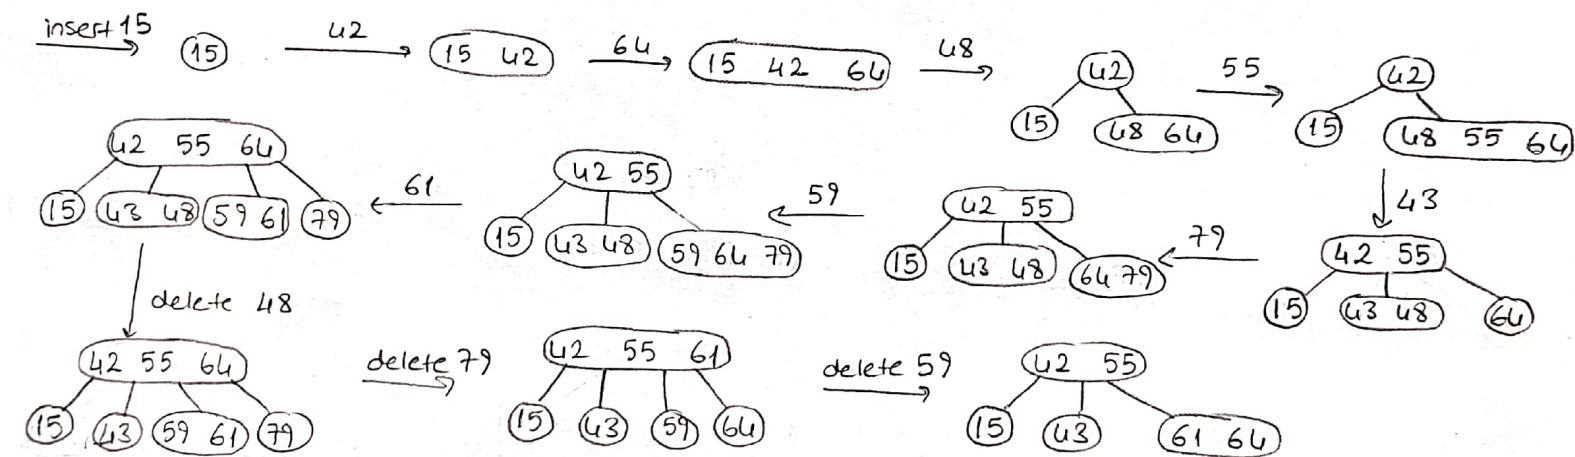 insert 15
15
42
15 42
64
15 42 64
48
42
15
48 64
55
42
15
48 55 64
43
42 55
15
43 48
64
79
42 55
15
43 48
64 79
59
42 55
15
43 48
59 64 79
61
42 55 64
15
43 48
59 61
79
delete 48
42 55 64
15
43
59 61
79
delete 79
42 55 61
15
43
59
64
delete 59
42 55
15
43
61 64